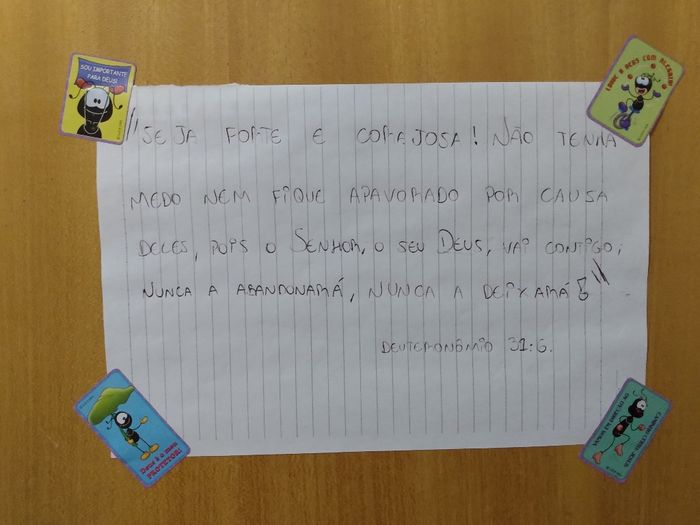 SOU IMPORTANTE
PARA DEUS!
LOUVE A DEUS COM ALEGRIA
"SEJA FORTE E CORAJOSA! NÃO TENHA
MEDO NEM FIQUE APAVORADO POR CAUSA
DELES, POIS O SENHOR, O SEU DEUS, VAI CONTIGO;
NUNCA A ABANDONARÁ, NUNCA A DEIXARÁ!"
DEUTERONÔMIO 31:6.
Deus é o meu
PROTETOR!
VAMOS EM DIREÇÃO AO
CAMINHO CERTO: JESUS